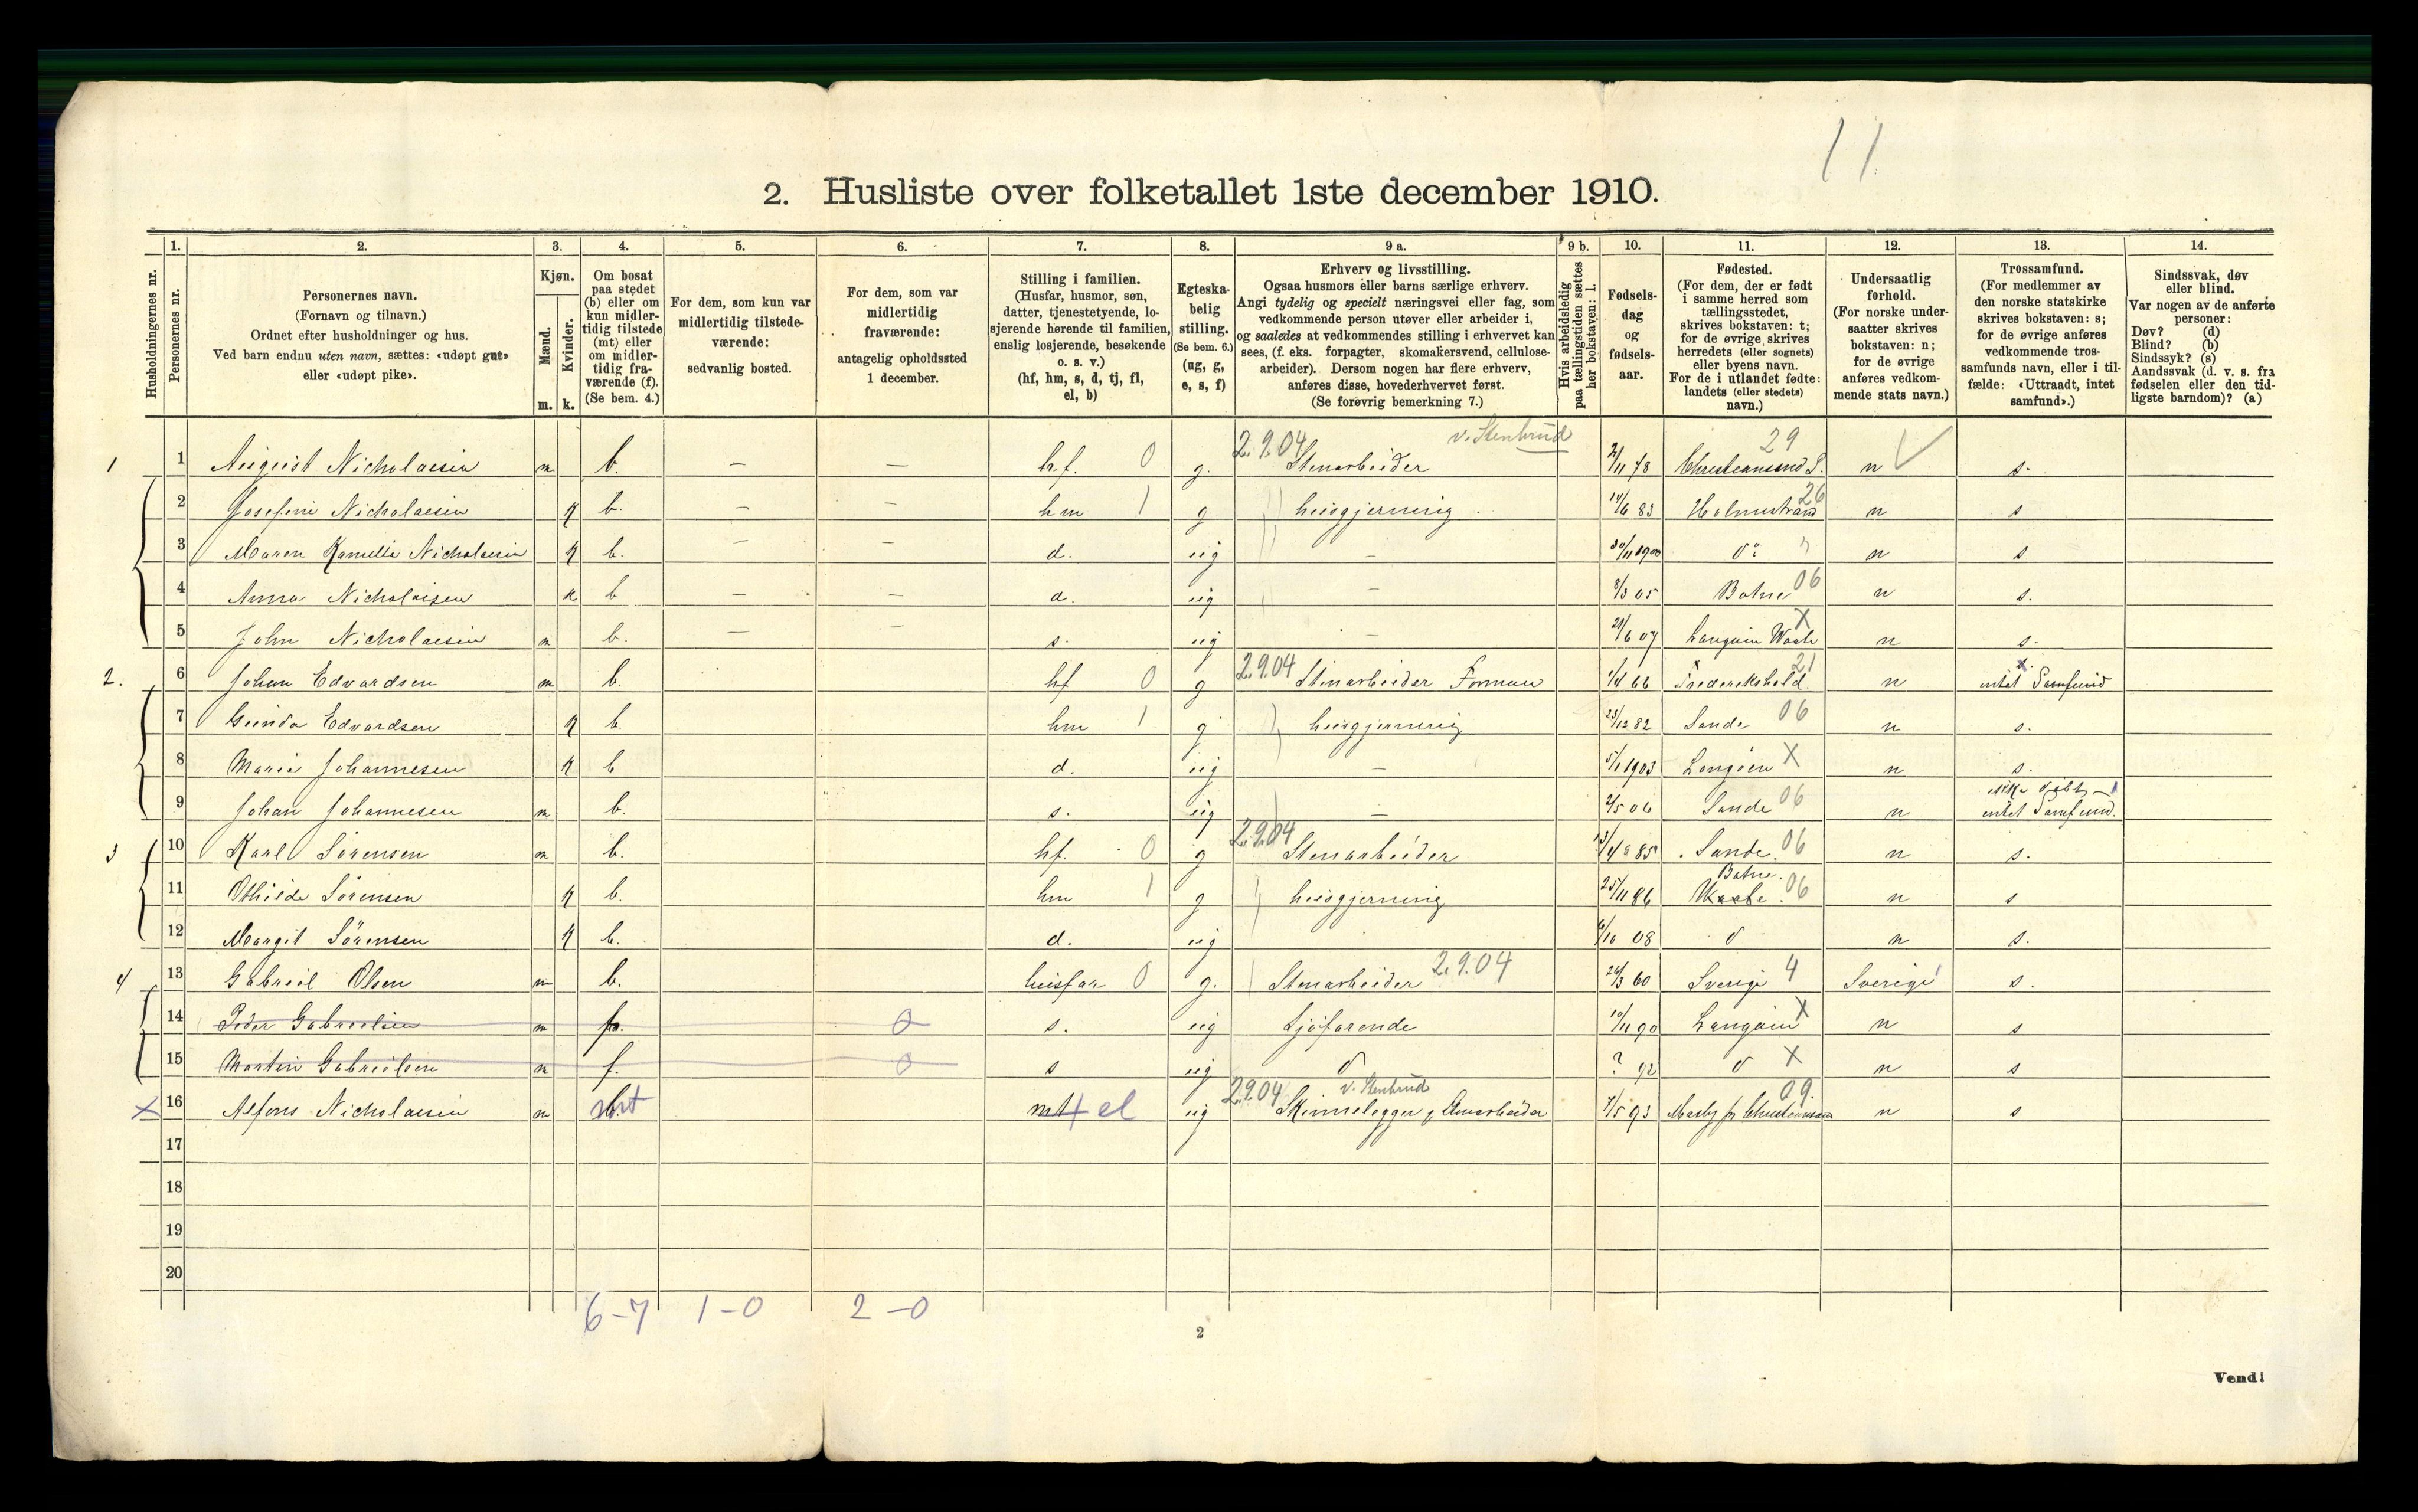 11
2. Husliste over folketallet 1ste december 1910.
Husholdningernes nr.
1. Personernes nr.
2. Personernes navn.
(Fornavn og tilnavn.)
Ordnet efter husholdninger og hus.
Ved barn endnu uten navn, sættes: «udøpt gut»
eller «udøpt pike».
3. Kjøn.
Mænd. Kvinder.
m. k.
4. Om bosat
paa stedet
(b) eller om
kun midler-
tidig tilstede
(mt) eller
om midler-
tidig fra-
værende (f).
(Se bem. 4.)
5. For dem, som kun var
midlertidig tilstede-
værende:
sedvanlig bosted.
6. For dem, som var
midlertidig
fraværende:
antagelig opholdssted
1 december.
7. Stilling i familien.
(Husfar, husmor, søn,
datter, tjenestetyende, lo-
sjerende hørende til familien,
enslig losjerende, besøkende
o. s. v.)
(hf, hm, s, d, tj, fl,
el, b)
8. Egteska-
belig
stilling.
(Se bem. 6.)
(ug, g,
e, s, f)
9 a. Erhverv og livsstilling.
Ogsaa husmors eller barns særlige erhverv.
Angi tydelig og specielt næringsvei eller fag, som
vedkommende person utøver eller arbeider i,
og saaledes at vedkommendes stilling i erhvervet kan
sees, (f. eks. forpagter, skomakersvend, cellulose-
arbeider). Dersom nogen har flere erhverv,
anføres disse, hovederhvervet først.
(Se forøvrig bemerkning 7.)
9 b. Hvis arbeidsledig
paa tællingstiden sættes
her bokstaven: l.
10. Fødsels-
dag
og
fødsels-
aar.
11. Fødested.
(For dem, der er født
i samme herred som
tællingsstedet,
skrives bokstaven: t;
for de øvrige skrives
herredets (eller sognets)
eller byens navn.
For de i utlandet fødte:
landets (eller stedets)
navn.)
12. Undersaatlig
forhold.
(For norske under-
saatter skrives
bokstaven: n;
for de øvrige
anføres vedkom-
mende stats navn.)
13. Trossamfund.
(For medlemmer av
den norske statskirke
skrives bokstaven: s;
for de øvrige anføres
vedkommende tros-
samfunds navn, eller i til-
fælde: «Uttraadt, intet
samfund».)
14. Sindssvak, døv
eller blind.
Var nogen av de anførte
personer:
Døv? (d)
Blind? (b)
Sindssyk? (s)
Aandssvak (d. v. s. fra
fødselen eller den tid-
ligste barndom)? (a)
1 1 August Nicholaisen m b. — — h.f. 0 g. 2.9.04 Stenarbeider v. Stenbrud 2/11 78 Christiansand S. 29 n s.
2 Josefine Nicholaisen k b. — — hm 1 g husgjerning 14/6 83 Holmestrand 26 n s
3 Maren Kamilla Nicholaisen k b. — — d. ug — 30/11 1900 do n s
4 Anna Nicholaisen k b — — d. ug — 8/3 05 Botne 06 n s.
5 John Nicholaisen m b. — — s. ug — 21/6 07 Langøen X n s.
2. 6 Johan Edvardsen m b. hf 0 g 2.9.04 Stenarbeider Forman 1/4 66 Frederikshald. 21 n intet Samfund
7 Gunda Edvardsen k b. hm 1 g husgjerning 23/12 82 Sande 06 n s.
8 Maria Johannesen k b d. ug — 5/1 1903 Langöen X n s.
9 Johan Johannesen m b. s. ug — 2/5 06 Sande 06 n ikke döbt intet Samfund.
3 10 Karl Sörensen m b. hf. 0 g 2.9.04 Stenarbeider 85 Sande 06 n s.
11 Othilde Sörensen k b. hm 1 g husgjerning 25/11 86 Botne. 06 n s
12 Margit Sörensen k b. d. ug 6/10 08 d n s.
4 13 Gabriel Olsen m b. husfar 0 g. Stenarbeider 2.9.04 24/3 60 Sverige 4 Sverige s.
14 Peder Gabrielsen m f. 0 s. ug Sjöfarende 10/11 90 Langöen X n s
15 Martin Gabrielsen m f. 0 s ug d ? 92 d X n s
X 16 Alfons Nicholaisen m mt mt el ug 2.9.04 v. Stenbrud Skinnelegger 7/5 93 09 n s
17
18
19
20
6–7 1–0 2–0
2
Vend!